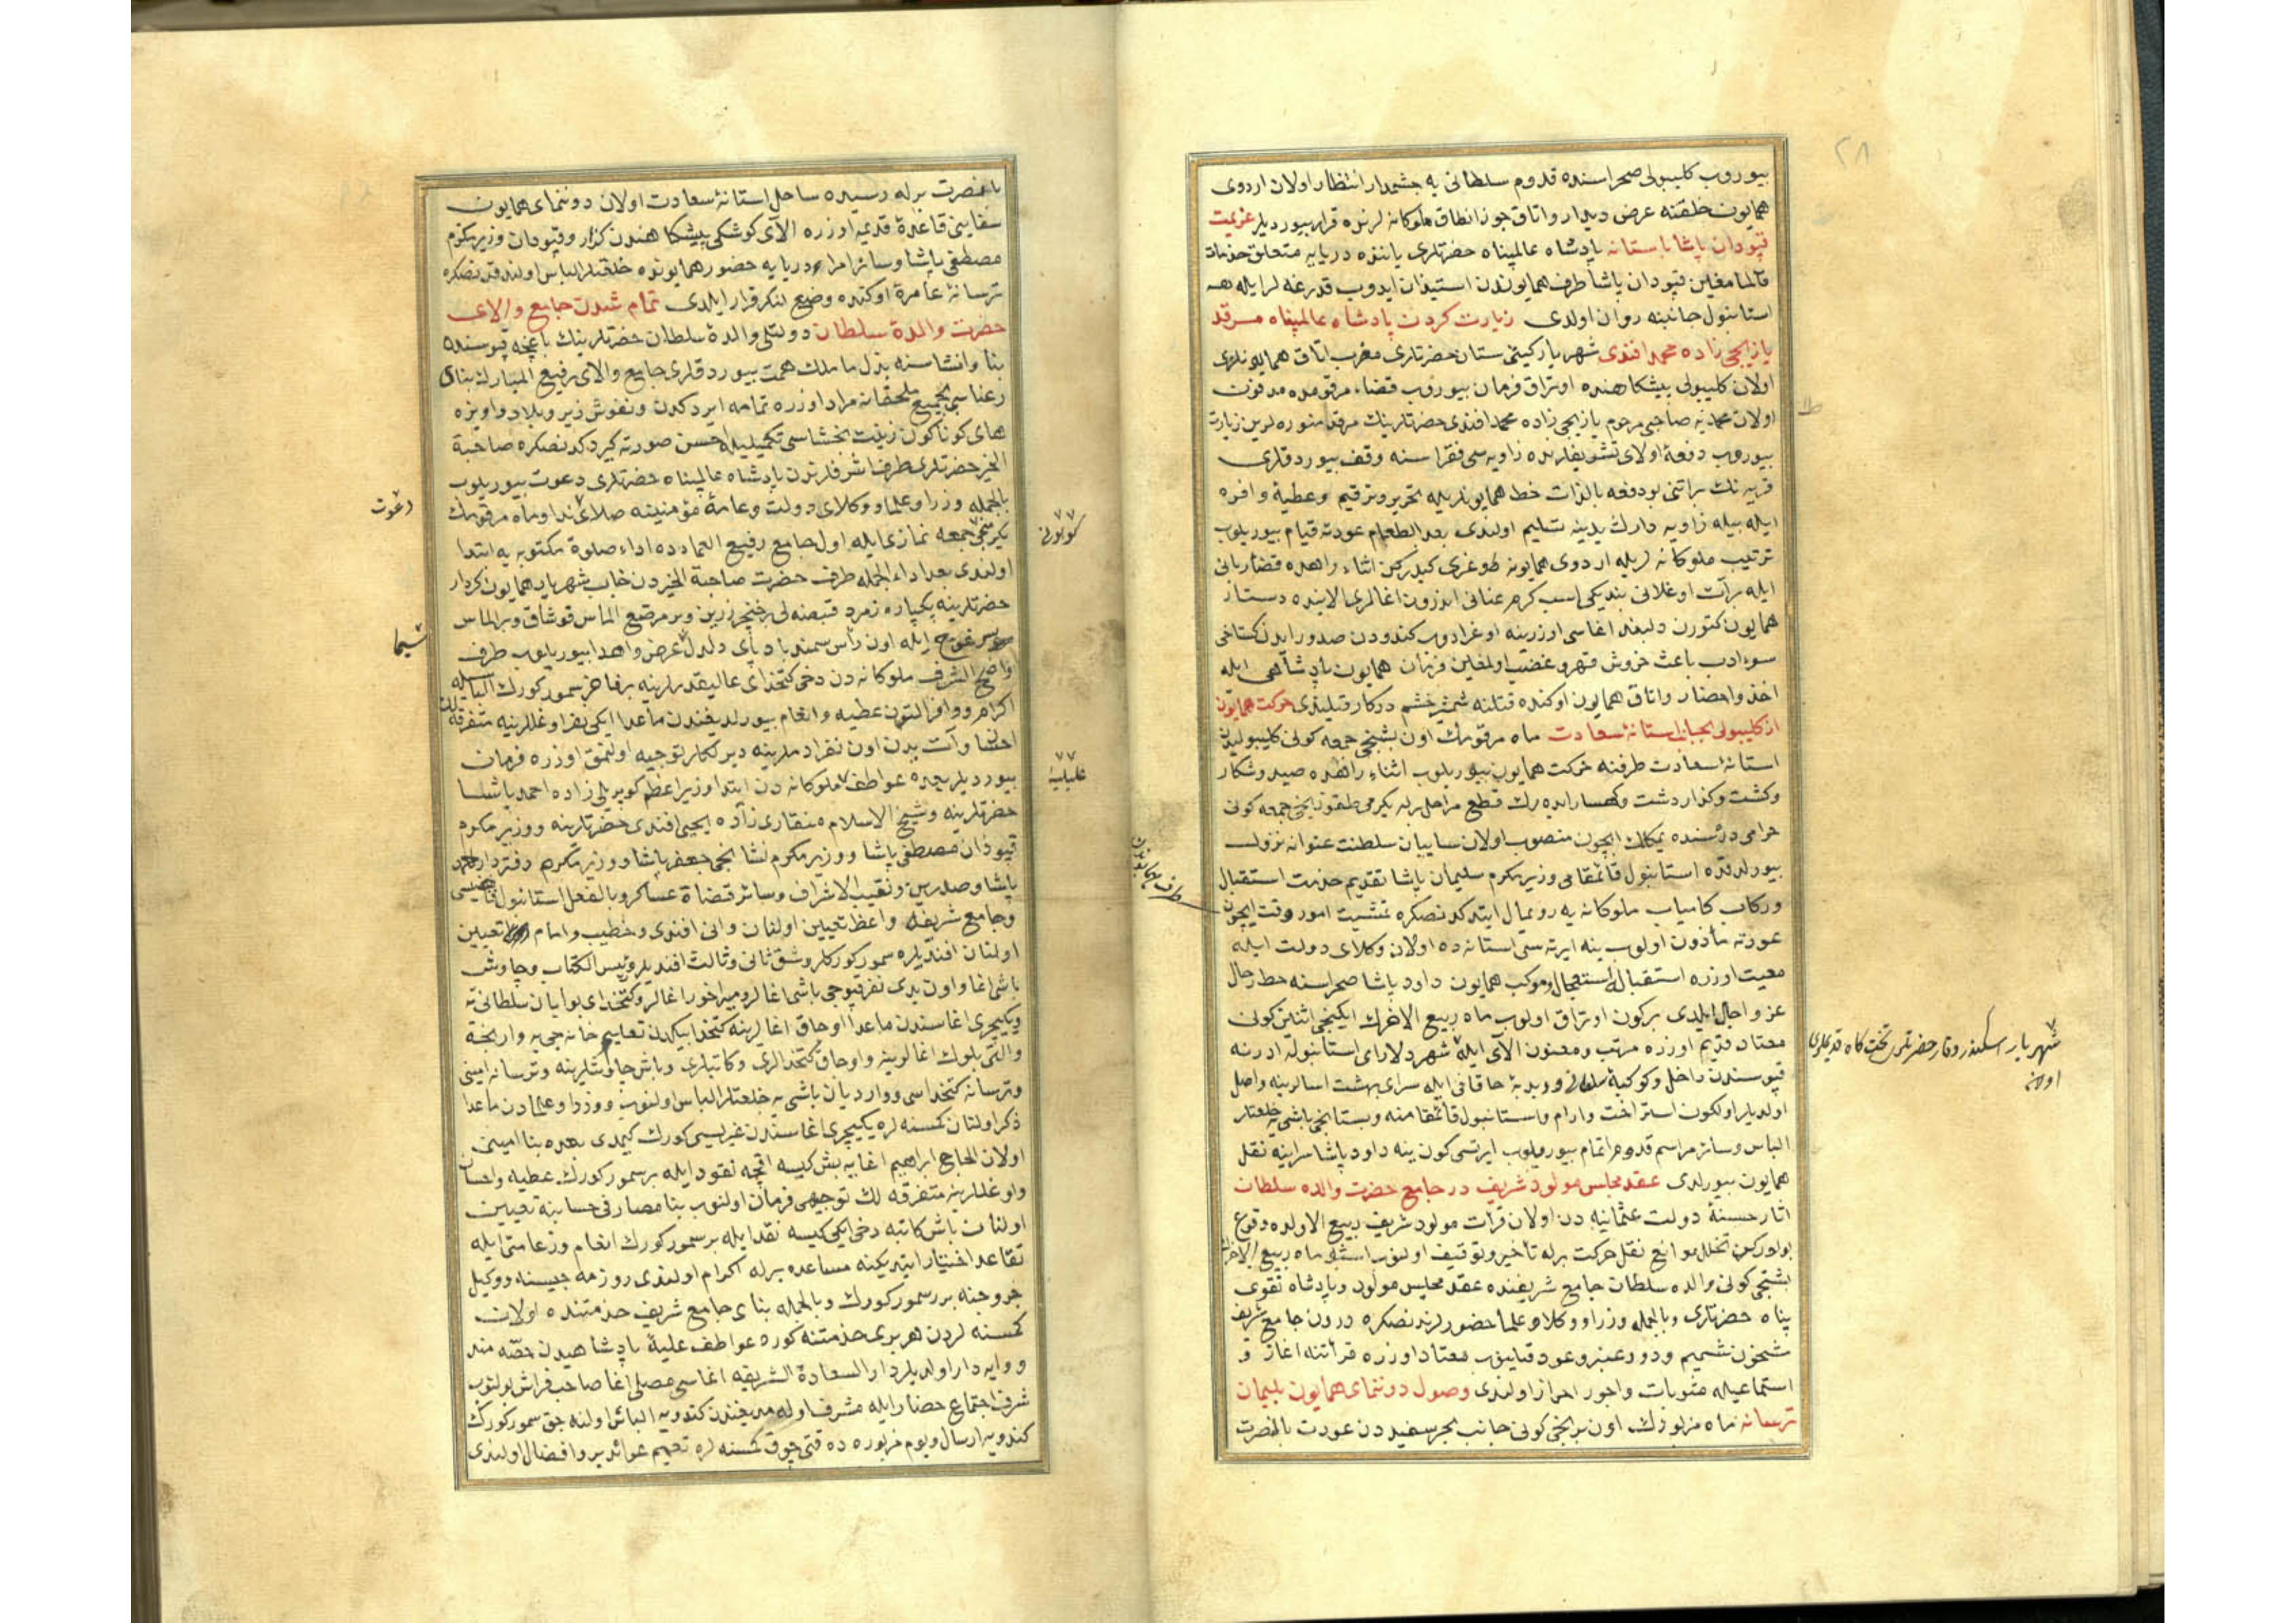 بیوروب کلیبولی صحراسنده قدوم سلطانی یه چشمدار انتظار اولان اردوی
همایون خلقنه عرض دیدار واتاق جوز انطاق ملوکانه لرنده قرار بیوردیلر عزیمت
قپودان پاشا باستانه پادشاه عالمپناه حضرتلری یاننده دریایه متعلق خدمات
قالمامغلین قپودان پاشا طرف همایوندن استیذان ایدوب قدرغه لر ایله
استانبول جانبنه روان اولدی زیارت کردن پادشاه عالمپناه مرقد
یازیجی زاده محمد افندی شهریار کیتی ستان حضرتلری مضرب اتاق همایونلری
اولان کلیبولی پیشکاهنده اوتراق فرمان بیوروب قضاء مرقومده مدفون
اولان محمدیه صاحبی مرحوم یازیجی زاده محمد افندی حضرتلرینك مرقد منوره لرین زیارت
بیوروب دفعهٔ اولای تشریفلرنده زاویه سی فقراسنه وقف بیوردقلری
قریه نك براتنی بو دفعه بالذات خط همایونلریله تحریر وترقیم وعطیهٔ وافره
ایله بیله زاویه دارك یدینه تسلیم اولندی بعد الطعام عودته قیام بیوریلوب
ترتیب ملوکانه لریله اردوی همایونه طوغری کیدرکن اثناء راهده قضاء ربانی
ایله برآت اوغلانی بندیکی اسب کرم عنانی اندرون اغالری الاینده دستار
همایون کتورن دلبند اغاسی اوزرینه اوغرادوب کندودن صدور ایدن کستاخی
سوء ادب باعث خروش قهر وغضب اولمغلین فرمان همایون پادشاهی ایله
اخذ واحضار واتاق همایون اوکنده قتلنه شمشیر خشم درکار قیلندی حرکت همایون
از کلیبولی بجانب استانهٔ سعادت ماه مرقومك اون بشنجی جمعه کونی کلیبولیدن
استانهٔ سعادت طرفنه حرکت همایون بیوریلوب اثناء راهده صید وشکار
وکشت وکذار دشت وکهسار ایده رك قطع مراحل برله یکرمی طقوزنجی جمعه کونی
حرامی دره سنده یمکلك ایچون منصوب اولان سایبان سلطنت عنوانه نزول
بیورلدقده استانبول قائمقامی وزیر مکرم سلیمان پاشا تقدیم خدمت استقبال
ورکاب کامیاب ملوکانه یه رویمال ایتدکدنصکره تمشیت امور وقت ایچون
عودته مأذون اولوب ینه ایرته سی استانه ده اولان وکلای دولت ایله
معیت اوزره استقباله استعجال وموکب همایون داود پاشا صحراسنه حط رحال
عز واجلال ایلدی برکون اوتراق اولوب ماه ربیع الاخرك ایکنجی اثنین کونی
معتاد قدیم اوزره مرتب ومعنون الای ایله شهر دلارای استانبوله ادرنه
قپوسندن داخل وکوکبهٔ سلطانی ودبدبهٔ خاقانی ایله سرای بهشت اسالرینه واصل
اولدیلر اولکون استراحت وارام واستانبول قائمقامنه وبستانجی باشی یه خلعتلر
الباس وسائر مراسم قدوم اتمام بیوریلوب ایرتسی کون ینه داود پاشا سراینه نقل
همایون بیورلدی عقد مجلس مولود شریف در جامع حضرت والده سلطان
اثار حسنهٔ دولت عثمانیه دن اولان قرأت مولود شریف ربیع الاولده وقوع
بولورکن تخلل موانع نقل حرکت برله تأخیر وتوقیف اولنوب اشبو ماه ربیع الاخرك
بشنجی کونی والده سلطان جامع شریفنده عقد مجلس مولود وپادشاه تقوی
پناه حضرتلری وبالجمله وزرا ووکلا وعلما حضورلرندنصکره درون جامع شریف
شحون تشمیم ودود عنبر وعود قیلنوب معتاد اوزره قرأتنه اغاز و
استماعیله مثوبات واجور احراز اولندی وصول دوننمای همایون بلیمان
ترسانه ماه مزبورك اون برنجی کونی جانب بحر سفیددن عودت بالنصرت
شهریار اسکندر وقار حضرتلری تختکاه قدیملری
اولان
طرف همایوندن
بالنصرت برله رسیده ساحل استانهٔ سعادت اولان دوننمای همایون
سفاینی قاعدهٔ قدیمه اوزره الای کوشکی پیشکاهندن کذار وقپودان وزیر مکرم
مصطفی پاشا وسائر امراء دریایه حضور همایونده خلعتلر الباس اولندقدنصکره
ترسانهٔ عامره اوکنده وضع لنکر قرار ایلدی تمام شدن جامع والای
حضرت والدهٔ سلطان دولتلی والدهٔ سلطان حضرتلرینك باغچه قپوسنده
بنا وانشاسنه بذل ما ملك همت بیوردقلری جامع والای رفیع المبارك بنای
رعناسی بجمیع ملحقاته مراد اوزره تمامه ایردکدن ونقوش زیر وبالا واویزه
های کوناکون زینت بخشاسی تکمیلیله احسن صورته کیردکدنصکره صاحبة
الخیر حضرتلری طرف اشرفلرندن پادشاه عالمپناه حضرتلری دعوت بیوریلوب
بالجمله وزرا وعلما ووکلای دولت وعامهٔ مؤمنینه صلای ندا وماه مرقومك
یکرمنجی جمعه نمازی ایله اول جامع رفیع العمادده اداء صلوة مکتوبه یه ابتدا
اولندی بعد اداء الجمعه طرف حضرت صاحبة الخیردن جناب شهریار همایون کردار
حضرتلرینه یکپاره زمرد قبضه لی بر خنجر زرین وبر مرصع الماس قوشاق وبر الماس
سرغوج ایله اون رأس سمند بادپای دلدل عرض واهدا بیوریلوب طرف
واضح الشرف ملوکانه دن دخی کتخدای عالیقدرلرینه بر فاخر سمور کورك الباسیله
اکرام ووافر التون عطیه وانعام بیورلدیغندن ماعدا ایکی نفر اوغللرینه متفرقه لك
احسان وآت یدن اون نفر ادملرینه دیرلکلر توجیه اولنمق اوزره فرمان
بیوردیلر بعده عواطف ملوکانه دن ابتدا وزیر اعظم کوپریلی زاده احمد پاشا
حضرتلرینه وشیخ الاسلام منقاری زاده یحیی افندی حضرتلرینه ووزیر مکرم
قپودان مصطفی پاشا ووزیر مکرم نشانجی جعفر پاشا ووزیر مکرم دفتردار احمد
پاشا وصدرین ونقیب الاشراف وسائر قضاة عساکر وبالفعل استانبول قاضیسی
وجامع شریفه واعظ تعیین اولنان وانی افندی وخطیب وامام تعیین
اولنان افندیلره سمور کورکلر وشق ثانی وثالث افندیلر ورئیس الکتاب وچاوش
باشی اغا واون یدی نفر قپوجی باشی اغالر ومیراخور اغالر وکتخدای بوابان سلطانی یه
ویکیچری اغاسندن ماعدا اوجاق اغالرینه کتخدا بیکدن تعلیم خانه جی یه وارنجه
والتی بلوك اغالرینه واوجاق کتخدالری وکاتبلری وباش چاوشلرینه وترسانه امینی
وترسانه کتخداسی وواردیان باشی یه خلعتلر الباس اولنوب ووزرا وعلمادن ماعدا
ذکر اولنان کمسنه لره یکیچری اغاسندن غیریسی کورك کیمدی بعده بنا امینی
اولان الحاج ابراهیم اغایه بش کیسه اقچه نقود ایله بر سمور کورك عطیه واحسان
واوغللرینه متفرقه لك توجیهی فرمان اولنوب بنا مصارفی حسابنه تعیین
اولنان باش کاتبه دخی ایکی کیسه نقد ایله بر سمور کورك انعام وزعامتی ایله
تقاعد اختیار ایتدیکنه مساعده برله اکرام اولندی روزنامه جیسنه ووکیل
خروجنه بر سمور کورك وبالجمله بنای جامع شریف خدمتنده اولان
کمسنه لردن هر بری خدمتنه کوره عواطف علیهٔ پادشاهیدن حصه مند
ووایه دار اولدیلر دار السعادة الشریفه اغاسی مصلی اغا صاحب فراش بولنوب
شرف اجتماع حضار ایله مشرف اوله مدیغندن کندویه الباس اولنه جق سمور کورك
کندویه ارسال ویوم مزبورده ده قتی چوق کمسنه لره تعمیم عوائد بر وافضال اولندی
دعوت